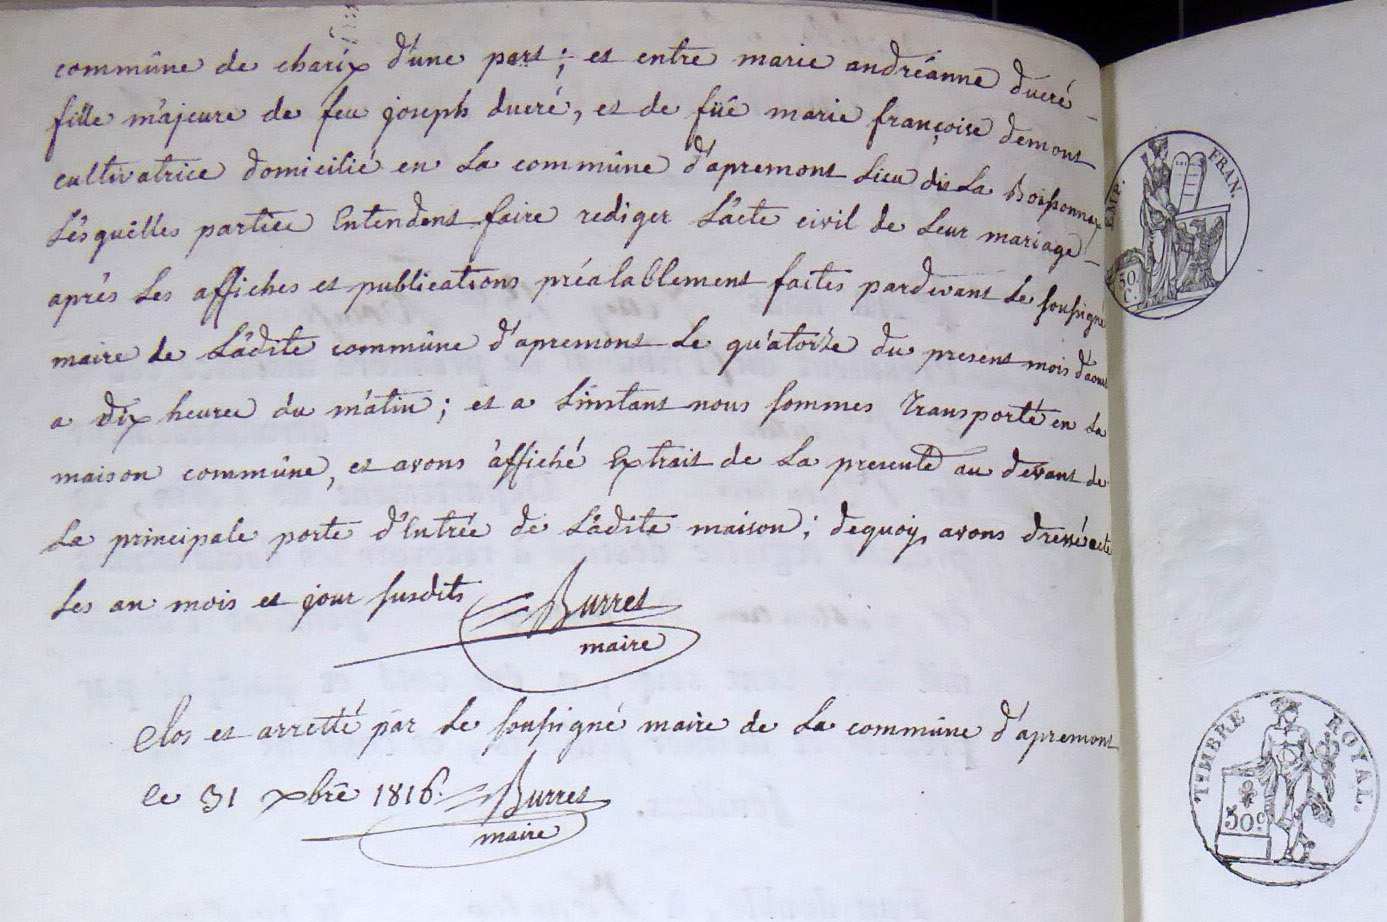 commûne de charix d'une part; et entre marie andréanne ducré
fille majeure de feu joseph ducré, et de füe marie françoise demont
cultivatrice domicilié en la commûne d'apremont lieu dit la Boissonnax
Lesquelles parties Entendent faire rediger l'acte civil de leur mariage
après les affiches et publications préalablement faites pardevant le soussigné
maire de Ladite commûne d'apremont le quatorze du present mois d'aout
a dix heures du matin; et a l'instant nous sommes transporté en la
maison commûne, et avons affiché Extrait de la presente au devant de
la principale porte d'Entrée de Ladite maison; dequoy avons dressé acte
les an mois et jour susdits Burret
maire
Clos et arretté par le soussigné maire de la commûne d'apremont
le 31 xbre 1816. Burret
maire
EMP. FRAN.
50 c.
TIMBRE ROYAL.
50 c.